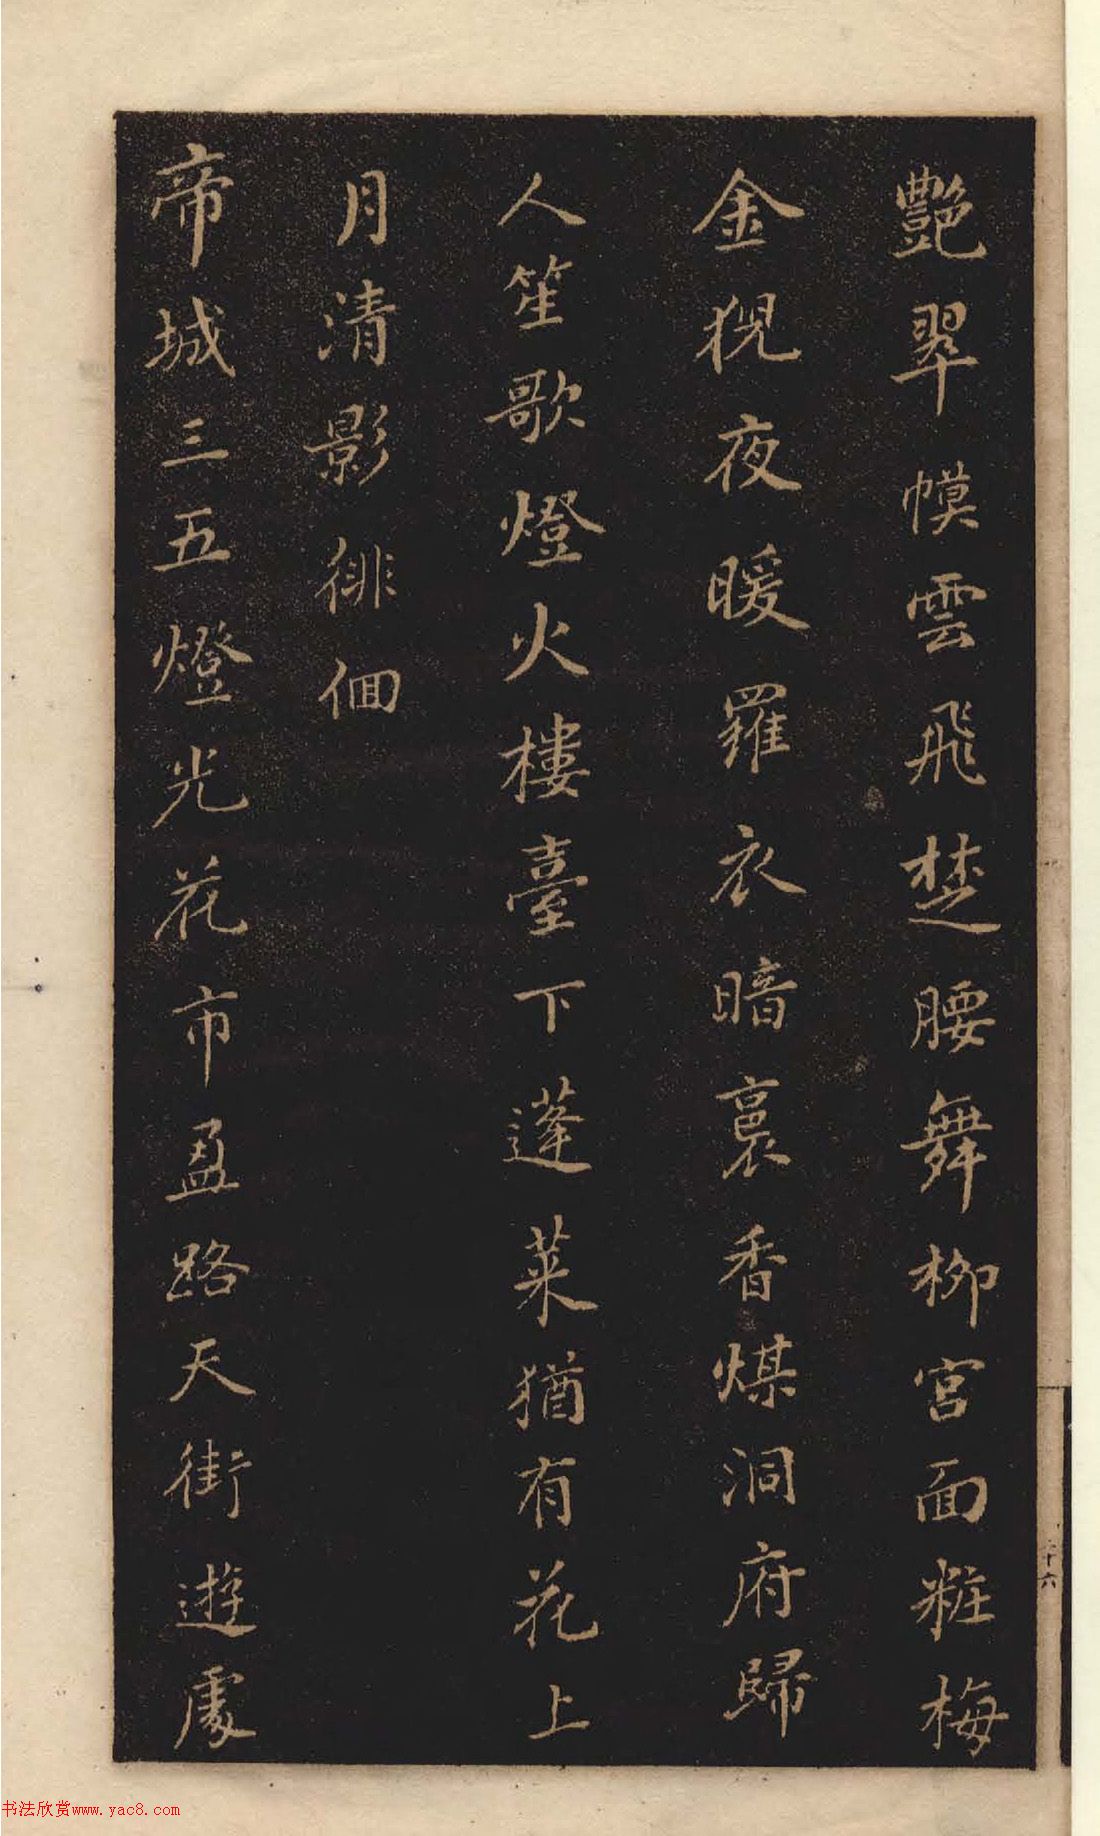 艷翠幙雲飛楚腰舞柳宮面粧梅
金猊夜暖羅衣暗裏香煤洞府歸
人笙歌燈火樓臺下蓬萊猶有花上
月清影徘徊
帝城三五燈光花市盈路天街遊處
二十六
书法欣赏www.yac8.com